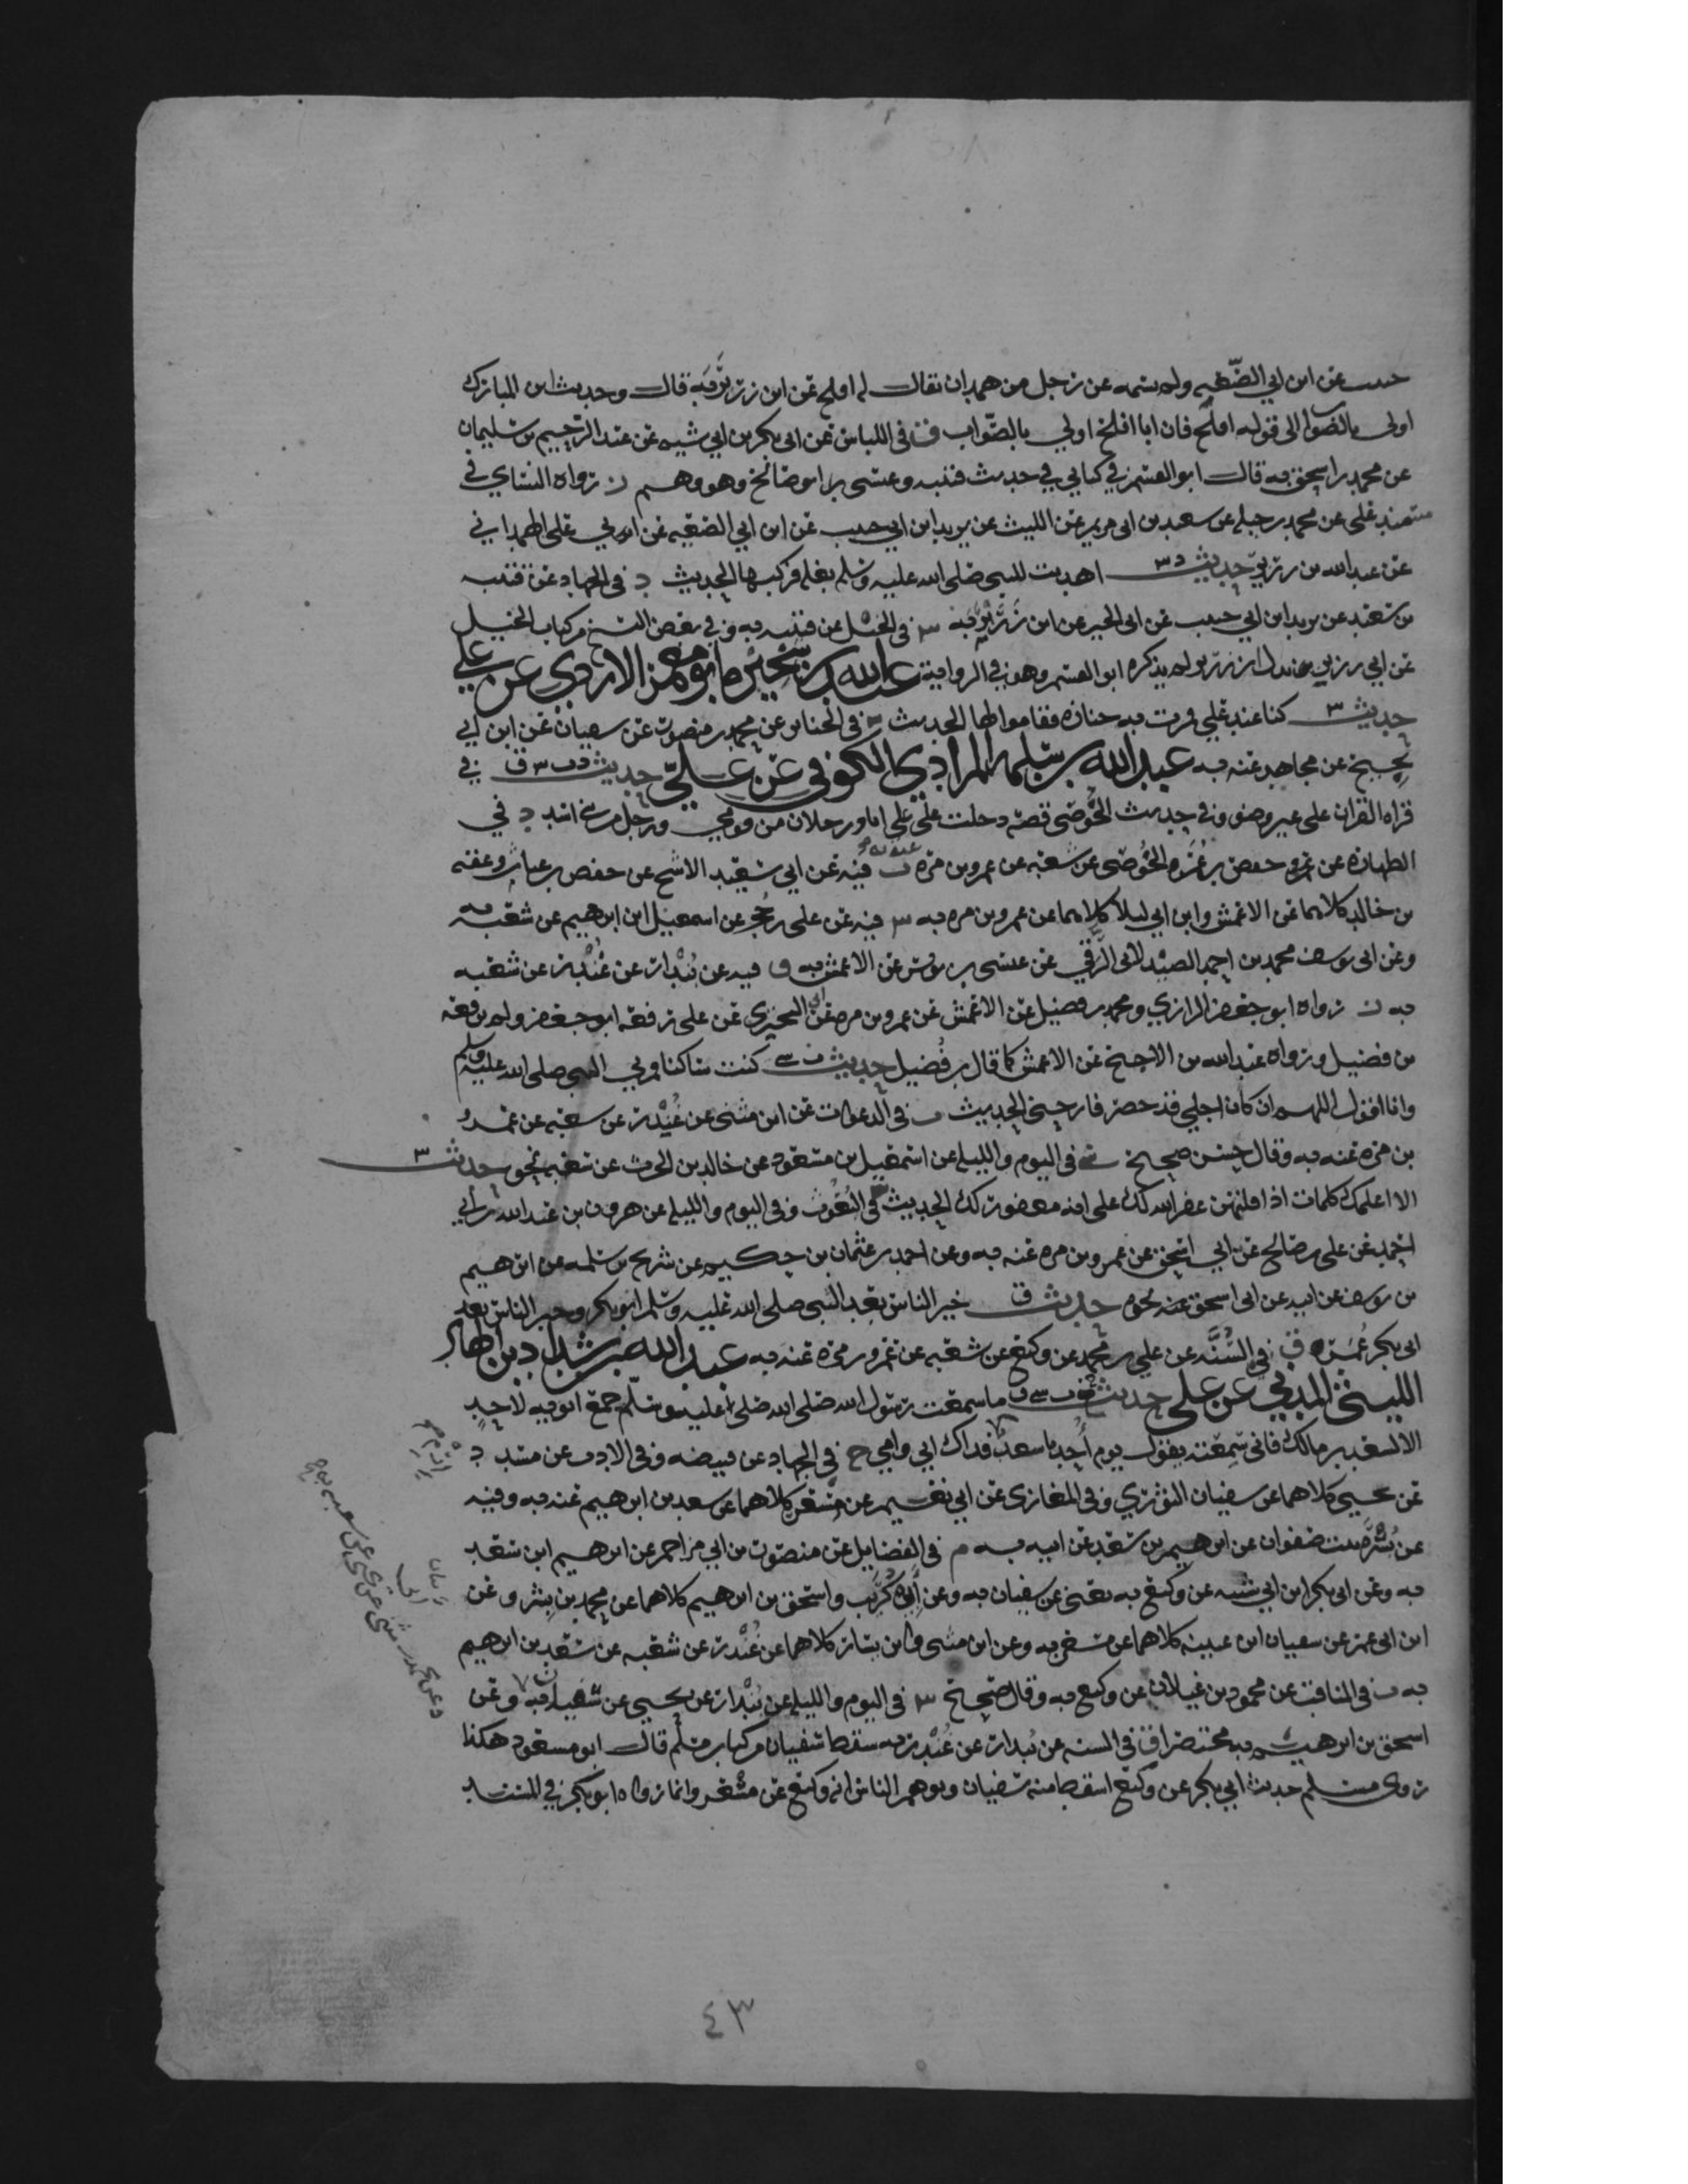 حبيب عن ابن ابي الصعبه ولم يسمه عن رجل من همدان يقال له افلح عن ابن زرير به قال وحديث ابن المبارك
اولى بالصواب الى قوله افلح فان ابا افلح اولى بالصواب ق في اللباس عن ابي بكر بن ابي شيبه عن عبد الرحيم بن سليمان
عن محمد بن اسحق به قال ابو القسم في كتابي في حديث قتيبه وعيسى بن حماد افلح وهو وهم ز رواه النساي في
مسند علي عن محمد بن جبله عن سعيد بن ابي مريم عن الليث عن يزيد ابن ابي حبيب عن ابن ابي الصعبه عن ابي علي الهمداني
عن عبد الله بن زرير حديث د س اهديت للنبي صلى الله عليه وسلم بغله فركبها الحديث د في الجهاد عن قتيبه
بن سعيد عن يزيد ابن ابي حبيب عن ابي الخير عن ابن زرير به س في الخيل عن قتيبه به وفي بعض النسخ من كتاب الخيل
عن ابي رزين بدل ابن زرير ولم يذكره ابو القسم وهو في الرواية عبد الله بن سخبره ابو معمر الازدي عن علي
حديث س كنا عند علي فمرت به جنازه فقاموا لها الحديث س في الجنايز عن محمد بن منصور عن سفيان عن ابن ابي
نجيح عن مجاهد عنه به عبد الله بن سلمه المرادي الكوفي عن علي حديث د ت س ق في
قراه القران على غير وضو وفي حديث الحوضي قصه دخلت على علي انا ورجلان رجل من قومي ورجل من بني اسد د في
الطهاره عن حفص بن عمر الحوضي عن شعبه عن عمرو بن مره ت فيه عن ابي سعيد الاشج عن حفص بن غياث وعقبه
بن خالد كلاهما عن الاعمش وابن ابي ليلى كلاهما عن عمرو بن مره به س فيه عن علي بن حجر عن اسمعيل ابن ابرهيم عن شعبه به
وعن ابي يوسف محمد بن احمد الصيدلاني الرقي عن عيسى بن يونس عن الاعمش به ق فيه عن بندار عن غندر عن شعبه
به ز رواه ابو جعفر الرازي ومحمد بن فضيل عن الاعمش عن عمرو بن مره عن ابي البختري عن علي رفعه ابو جعفر ولم يرفعه
بن فضيل ورواه عبد الله بن الاجلح عن الاعمش كما قال بن فضيل حديث ت سي كنت شاكيا فمر بي النبي صلى الله عليه وسلم
وانا اقول اللهم ان كان اجلي قد حضر فارحني الحديث ت في الدعوات عن ابن مثنى عن غندر عن شعبه عن عمرو
بن مره عنه به وقال حسن صحيح سي في اليوم والليله عن اسمعيل بن مسعود عن خالد بن الحرث عن شعبه نحوه حديث س
الا اعلمك كلمات اذا قلتهن غفر الله لك على انه مغفور لك الحديث س في النعوت وفي اليوم والليله عن هرون بن عبد الله عن ابي
احمد عن علي بن صالح عن ابي اسحق عن عمرو بن مره عنه به وعن احمد بن عثمان بن حكيم عن شريح بن مسلمه عن ابرهيم
بن يوسف عن ابيه عن ابي اسحق عنه نحوه حديث ق خير الناس بعد النبي صلى الله عليه وسلم ابو بكر وخير الناس بعد
ابي بكر عمر ق في السنه عن علي بن محمد عن وكيع عن شعبه عن عمرو بن مره عنه به عبد الله بن شداد بن الهاد
الليثي المدني عن علي حديث خ م ت سي ق ما سمعت رسول الله صلى الله صلى عليه وسلم جمع ابويه لاحد
الا لسعد بن مالك فاني سمعته يقول يوم احد يا سعد فداك ابي وامي خ في الجهاد عن قبيصه وفي الادب عن مسدد
عن يحيى كلاهما عن سفيان الثوري وفي المغازي عن ابي نعيم عن مسعر كلاهما عن سعد بن ابرهيم عنه به وفيه
عن يسره بنت صفوان عن ابرهيم بن سعد عن ابيه به م في الفضايل عن منصور بن ابي مزاحم عن ابرهيم ابن سعد
به وعن ابي بكر ابن ابي شيبه عن وكيع به يعني عن سفيان به وعن ابي كريب واسحق بن ابرهيم كلاهما عن محمد بن بشر وعن
ابن ابي عمر عن سفيان ابن عيينه كلاهما عن مسعر به وعن ابن مثنى وابن بشار كلاهما عن غندر عن شعبه عن سعد بن ابرهيم
به ت في المناقب عن محمود بن غيلان عن وكيع به وقال صحيح س في اليوم والليله عن بندار عن يحيى عن سفيان به وعن
اسحق بن ابرهيم به مختصرا ق في السنه عن بندار عن غندر به سقط سفيان من كتاب مسلم قال ابو مسعود هكذا
روى مسلم حديث ابي بكر عن وكيع اسقط منه سفيان وتوهم الناس انه وكيع عن مسعر وانما رواه ابو بكر في المسند
٤٣